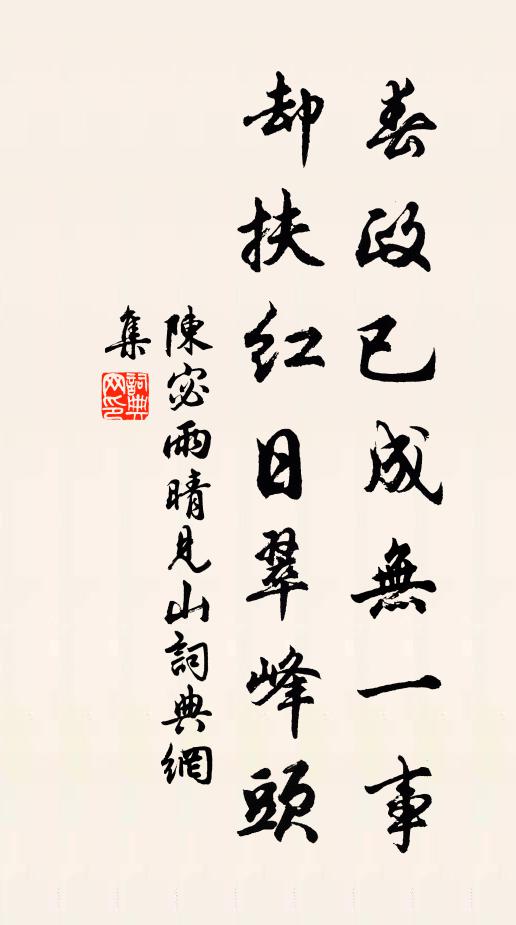 春政已成無一事
却扶紅日翠峰頭
陳宓雨晴見山詞典網
集
詞典
网印